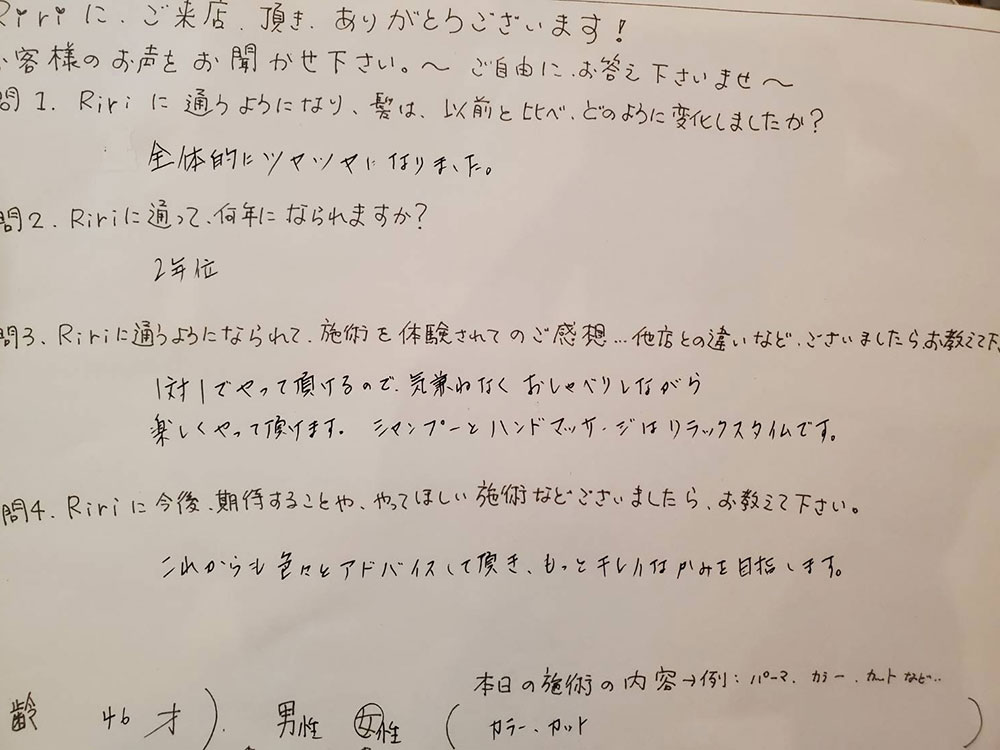 Ririに、ご来店、頂き、ありがとうございます!
お客様のお声をお聞かせ下さい。〜 ご自由に、お答え下さいませ〜
問1. Ririに通うようになり、髪は、以前と比べ、どのように変化しましたか?
全体的にツヤツヤになりました。
問2. Ririに通って、何年になられますか?
2年位
問3、Ririに通うようになられて、施術を体験されてのご感想…他店との違いなど、ございましたら、お教えて下
1対1でやって頂けるので、気兼ねなくおしゃべりしながら
楽しくやって頂けます。 シャンプーとハンドマッサージはリラックスタイムです。
問4. Ririに今後、期待することや、やってほしい施術などございましたら、お教えて下さい。
これからも色々とアドバイスして頂き、もっとキレイなかみを目指します。
本日の施術の内容→例:パーマ、カラー、カットなど…
齢 46才). 男性 女性 (カラー、カット )